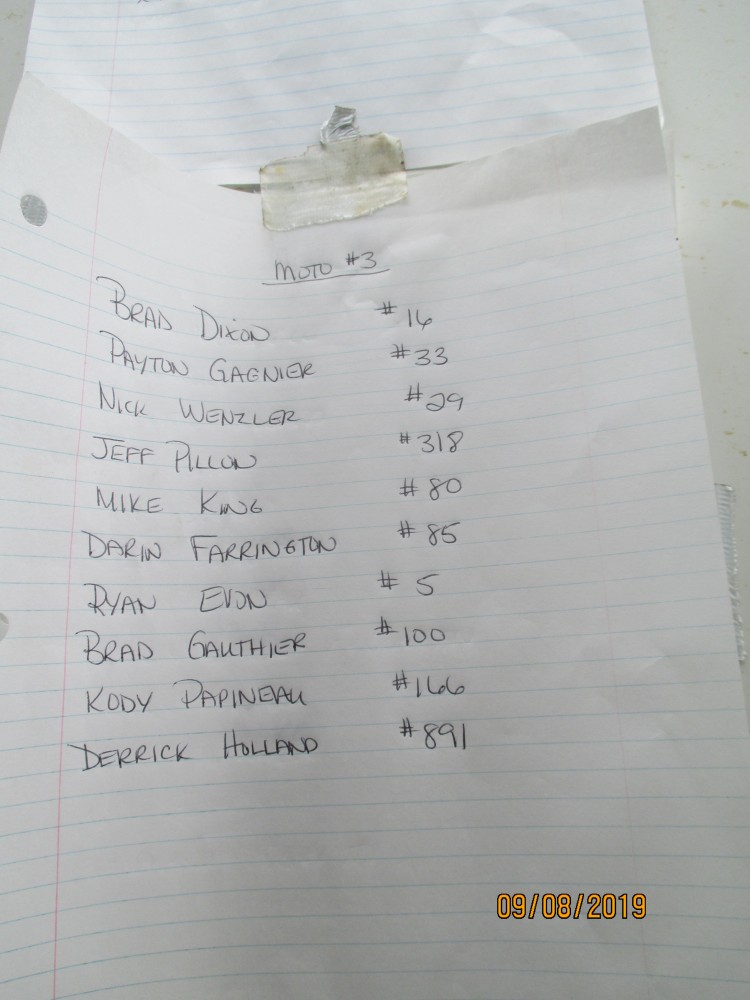 MOTO #3
BRAD DIXON #16
PAYTON GAGNIER #33
NICK WENZLER #29
JEFF PILLON #318
MIKE KING #80
DARIN FARRINGTON #85
RYAN EVON #5
BRAD GAUTHIER #100
KODY PAPINEAU #166
DERRICK HOLLAND #891
09/08/2019